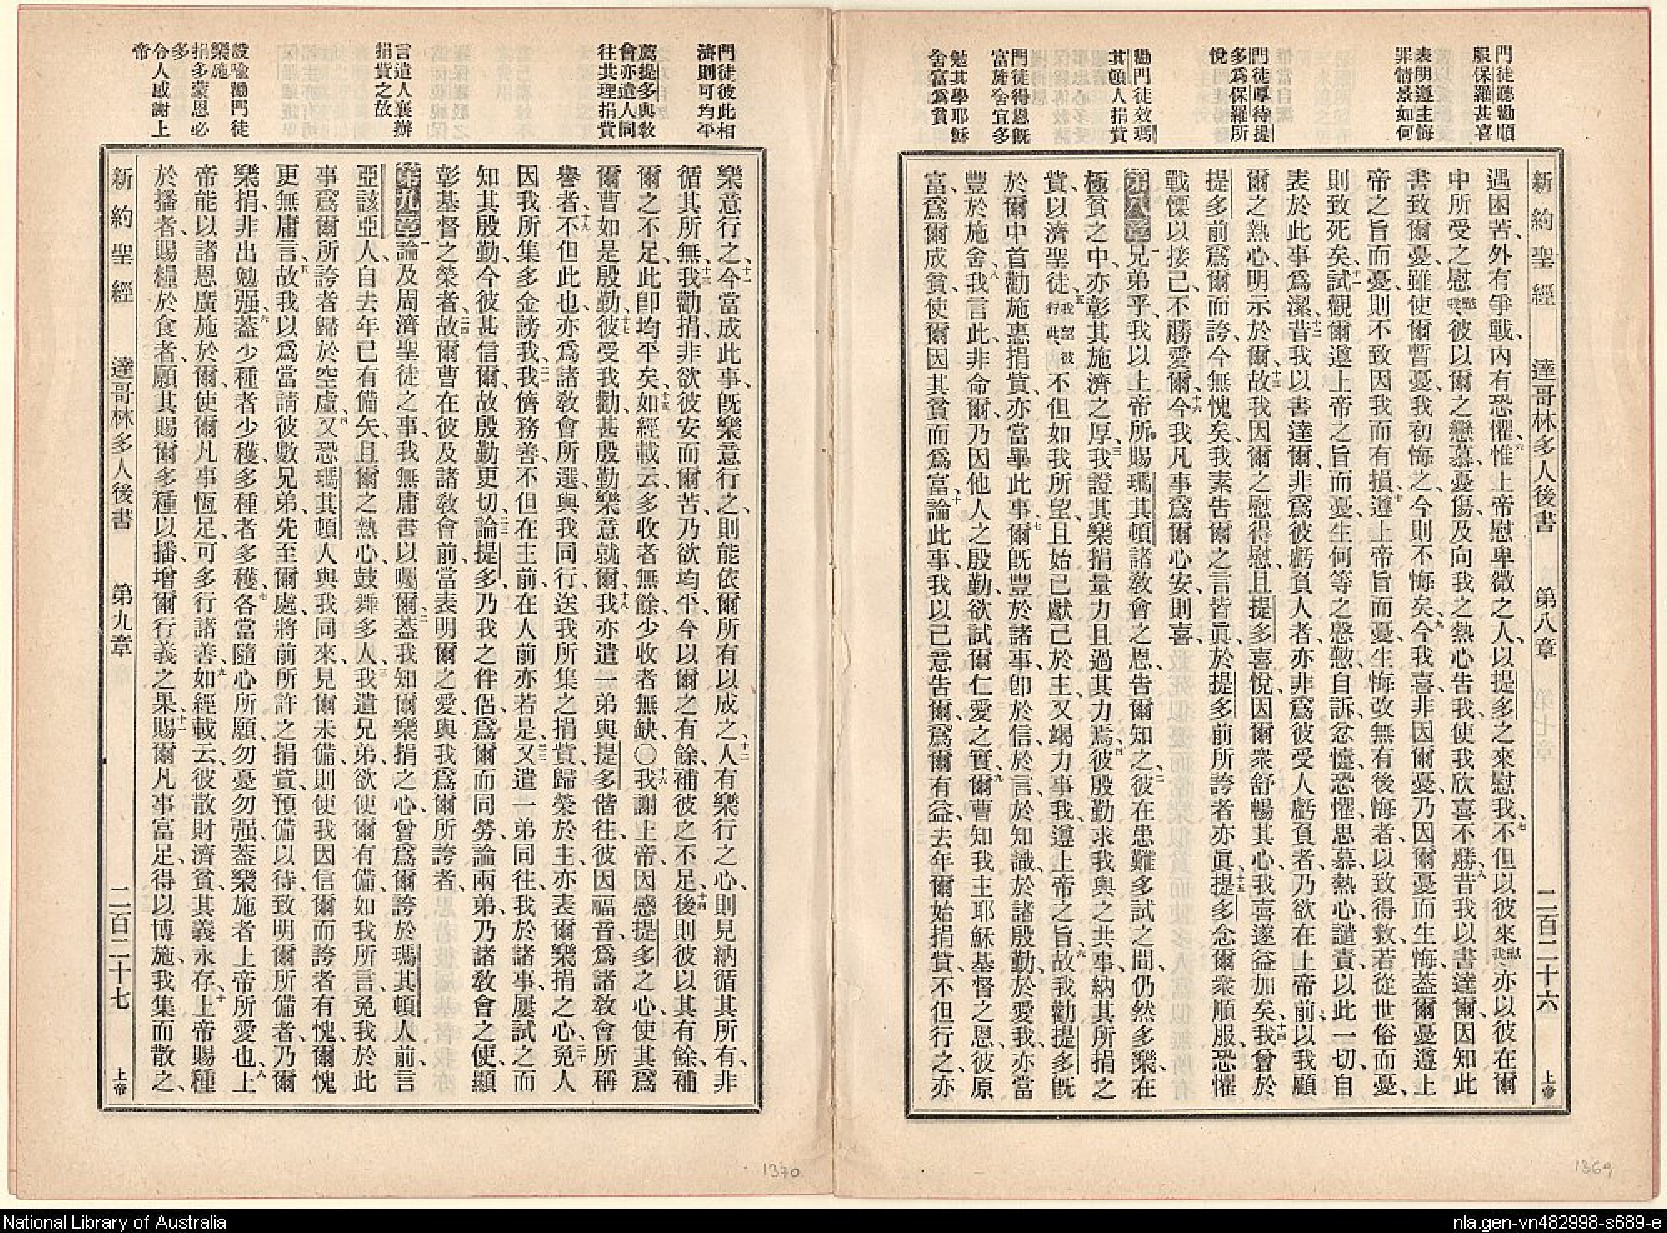 門徒聽勸順
服保羅甚喜
表明遵主悔
罪情景如何
門徒厚待提
多爲保羅所
悅
勸門徒效瑪
其頓人捐貲
門徒得恩既
富施舍宜多
勉其學耶穌
舍富爲貧
新約聖經 達哥林多人後書 第八章 二百二十六 上帝
遇困苦、外有爭戰、內有恐懼、六惟上帝慰卑微之人、以提多之來慰我、七不但以彼來慰我、亦以彼在爾
中所受之慰慰我、彼以爾之戀慕憂傷及向我之熱心告我、使我欣喜不勝、八昔我以書達爾、因知此
書致爾憂、雖使爾暫憂、我初悔之、今則不悔矣、九今我喜、非因爾憂、乃因爾憂而生悔、蓋爾憂遵上
帝之旨而憂、則不致因我而有損、十遵上帝旨而憂、生悔改無有後悔者、以致得救、若從世俗而憂、
則致死矣、十一試觀爾遵上帝之旨而憂、生何等之慇懃、自訴、忿懥、恐懼、思慕、熱心、譴責、以此一切自
表於此事爲潔、十二昔我以書達爾、非爲彼虧負人者、亦非爲彼受人虧負者、乃欲在上帝前、以我顧
爾之熱心、明示於爾、十三故我因爾之慰得慰、且提多喜悅、因爾衆舒暢其心、我喜遂益加矣、十四我曾於
提多前爲爾而誇、今無愧矣、我素告爾之言皆眞、於提多前所誇者亦眞、十五提多念爾衆順服、恐懼
戰慄以接己、不勝愛爾、十六今我凡事爲爾心安、則喜、
第八章 一兄弟乎、我以上帝所賜瑪其頓諸敎會之恩、告爾知之、二彼在患難多試之間、仍然多樂、在
極貧之中、亦彰其施濟之厚、三我證其樂捐量力、且過其力焉、四彼殷勤求我與之共事、納其所捐之
貲、以濟聖徒、五我望彼行此、不但如我所望、且始已獻己於主、又竭力事我、遵上帝之旨、六故我勸提多既
於爾中首勸施惠捐貲、亦當畢此事、七爾既豐於諸事、卽於信、於言、於知識、於諸殷勤、於愛我、亦當
豐於施舍、八我言此、非命爾、乃因他人之殷勤、欲試爾仁愛之實、九爾曹知我主耶穌基督之恩、彼原
富、爲爾成貧、使爾因其貧而爲富、十論此事、我以己意告爾、爲爾有益、去年爾始捐貲、不但行之、亦
1369
門徒彼此相
濟則可均平
薦提多與敎
會亦遣人同
往共理捐貲
言遣人襄辦
捐貲之故
設喩勸門徒
樂施
捐多蒙恩必
多
令人感謝上
帝
樂意行之、十一今當成此事、既樂意行之、則能依爾所有以成之、十二人有樂行之心、則見納、循其所有、非
循其所無、十三我勸捐、非欲彼安而爾苦、乃欲均平、今以爾之有餘、補彼之不足、十四後則彼以其有餘、補
爾之不足、此卽均平矣、十五如經載云、多收者無餘、少收者無缺、〇十六我謝上帝、因感提多之心、使其爲
爾曹如是殷勤、十七彼受我勸、甚殷勤樂意就爾、十八我亦遣一弟與提多偕往、彼因福音爲諸敎會所稱
譽者、十九不但此也、亦爲諸敎會所選、與我同行、送我所集之捐貲、歸榮於主、亦表爾樂捐之心、二十免人
因我所集多金謗我、二一我儕務善、不但在主前、在人前亦若是、二二又遣一弟同往、我於諸事屢試之而
知其殷勤、今彼甚信爾、故殷勤更切、二三論提多、乃我之伴侶、爲爾而同勞、論兩弟、乃諸敎會之使、顯
彰基督之榮者、二四故爾曹在彼及諸敎會前、當表明爾之愛、與我爲爾所誇者、
第九章 一論及周濟聖徒之事、我無庸書以囑爾、二蓋我知爾樂捐之心、曾爲爾誇於瑪其頓人前、言
亞該亞人自去年已有備矣、且爾之熱心鼓舞多人、三我遣兄弟、欲使爾有備、如我所言、免我於此
事爲爾所誇者歸於空虛、四又恐瑪其頓人與我同來、見爾未備、則使我因信爾而誇者有愧、爾愧
更無庸言、五故我以爲當請彼數兄弟、先至爾處、將前所許之捐貲、預備以待、致明爾所備者、乃爾
樂捐、非出勉强、六蓋少種者少穫、多種者多穫、七各當隨心所願、勿憂勿强、蓋樂施者上帝所愛也、八上
帝能以諸恩廣施於爾、使爾凡事恆足、可多行諸善、九如經載云、彼散財濟貧、其義永存、十上帝賜種
於播者、賜糧於食者、願其賜爾多種以播、增爾行義之果、十一賜爾凡事富足、得以博施、我集而散之、
新約聖經 達哥林多人後書 第九章 二百二十七 上帝
1370
National Library of Australia
nla.gen-vn482998-s689-e